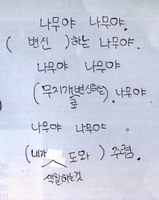 나무야 나무야
( 변신 )하는 나무야.
나무야 나무야
(무지개변신하는). 나무야
로
나무야 나무야
(내가 도와) 주렴.
색칠하는것